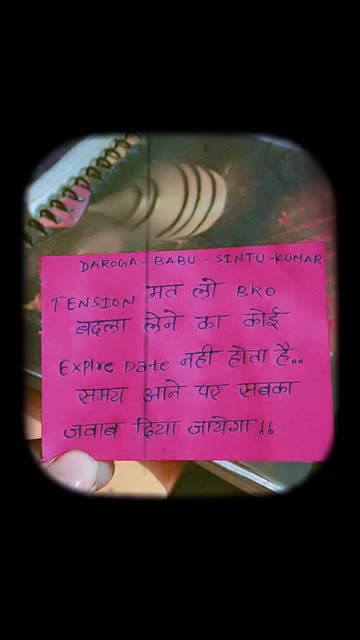 DAROGA - BABU - SINTU - KUMAR
TENSION मत लो BRO
बदला लेने का कोई
Expire Date नही होता है..
समय आने पर सबका
जवाब दिया जायेगा!!